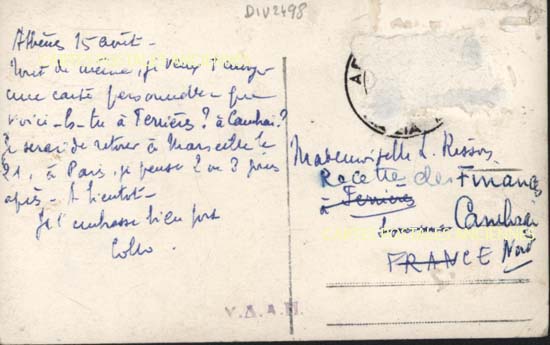 DIV2498
Athènes 15 août -
Tout de même, je veux t'envoyer
une carte personnelle - que
voici - Es-tu à Ferrières ? à Cambrai ?
Je serai de retour à Marseille le
21, à Paris, je pense 2 ou 3 jours
après - A bientôt -
Je t'embrasse bien fort
Mademoiselle L.
Recette des Finances
à Ferrières
Cambrai
FRANCE Nord
Υ.Δ.Α.Π.